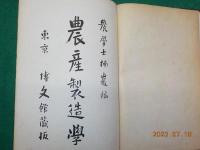 農學士楠巖編
農産製造學
東京 博文館藏板
2023/07/18